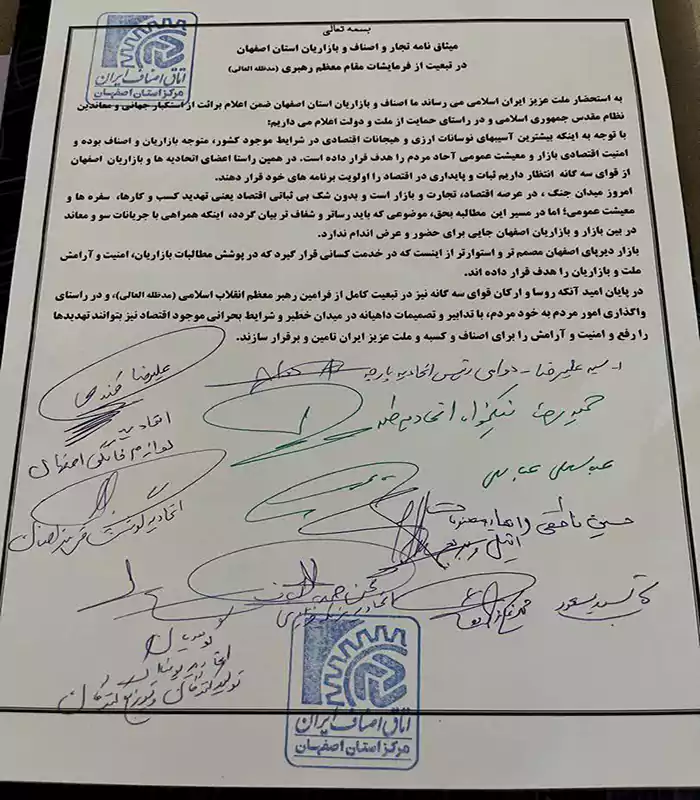 بسمه تعالی
میثاق نامه تجار و اصناف و بازاریان استان اصفهان
در تبعیت از فرمایشات مقام معظم رهبری (مدظله العالی)
اتاق اصناف ایران
مرکز استان اصفهان
به استحضار ملت عزیز ایران اسلامی می رساند ما اصناف و بازاریان استان اصفهان ضمن اعلام برائت از استکبار جهانی و معاندین
نظام مقدس جمهوری اسلامی و در راستای حمایت از ملت و دولت اعلام می داریم:
با توجه به اینکه بیشترین آسیبهای نوسانات ارزی و هیجانات اقتصادی در شرایط موجود کشور، متوجه بازاریان و اصناف بوده و
امنیت اقتصادی بازار و معیشت عمومی آحاد مردم را هدف قرار داده است. در همین راستا اعضای اتحادیه ها و بازاریان اصفهان
از قوای سه گانه انتظار داریم ثبات و پایداری در اقتصاد را اولویت برنامه های خود قرار دهند.
امروز میدان جنگ ، در عرصه اقتصاد، تجارت و بازار است و بدون شک بی ثباتی اقتصاد یعنی تهدید کسب و کارها، سفره ها و
معیشت عمومی؛ اما در مسیر این مطالبه بحق، موضوعی که باید رساتر و شفاف تر بیان گردد، اینکه همراهی با جریانات سو و معاند
در بین بازار و بازاریان اصفهان جایی برای حضور و عرض اندام ندارد.
بازار دیرپای اصفهان مصمم تر و استوارتر از اینست که در خدمت کسانی قرار گیرد که در پوشش مطالبات بازاریان، امنیت و آرامش
ملت و بازاریان را هدف قرار داده اند.
در پایان امید آنکه روسا و ارکان قوای سه گانه نیز در تبعیت کامل از فرامین رهبر معظم انقلاب اسلامی (مدظله العالی)، و در راستای
واگذاری امور مردم به خود مردم، با تدابیر و تصمیمات داهیانه در میدان خطیر و شرایط بحرانی موجود اقتصاد نیز بتوانند تهدیدها
را رفع و امنیت و آرامش را برای اصناف و کسبه و ملت عزیز ایران تامین و برقرار سازند.
۱- سید علیرضا - دوامی رئیس اتحادیه پارچه
علیرضا
اتحادیه
لوازم خانگی اصفهان
اتحادیه
عباسعلی عباسی
اتحادیه گوشت
حسین
سید مسعود
اتحادیه
اتاق اصناف ایران
مرکز استان اصفهان